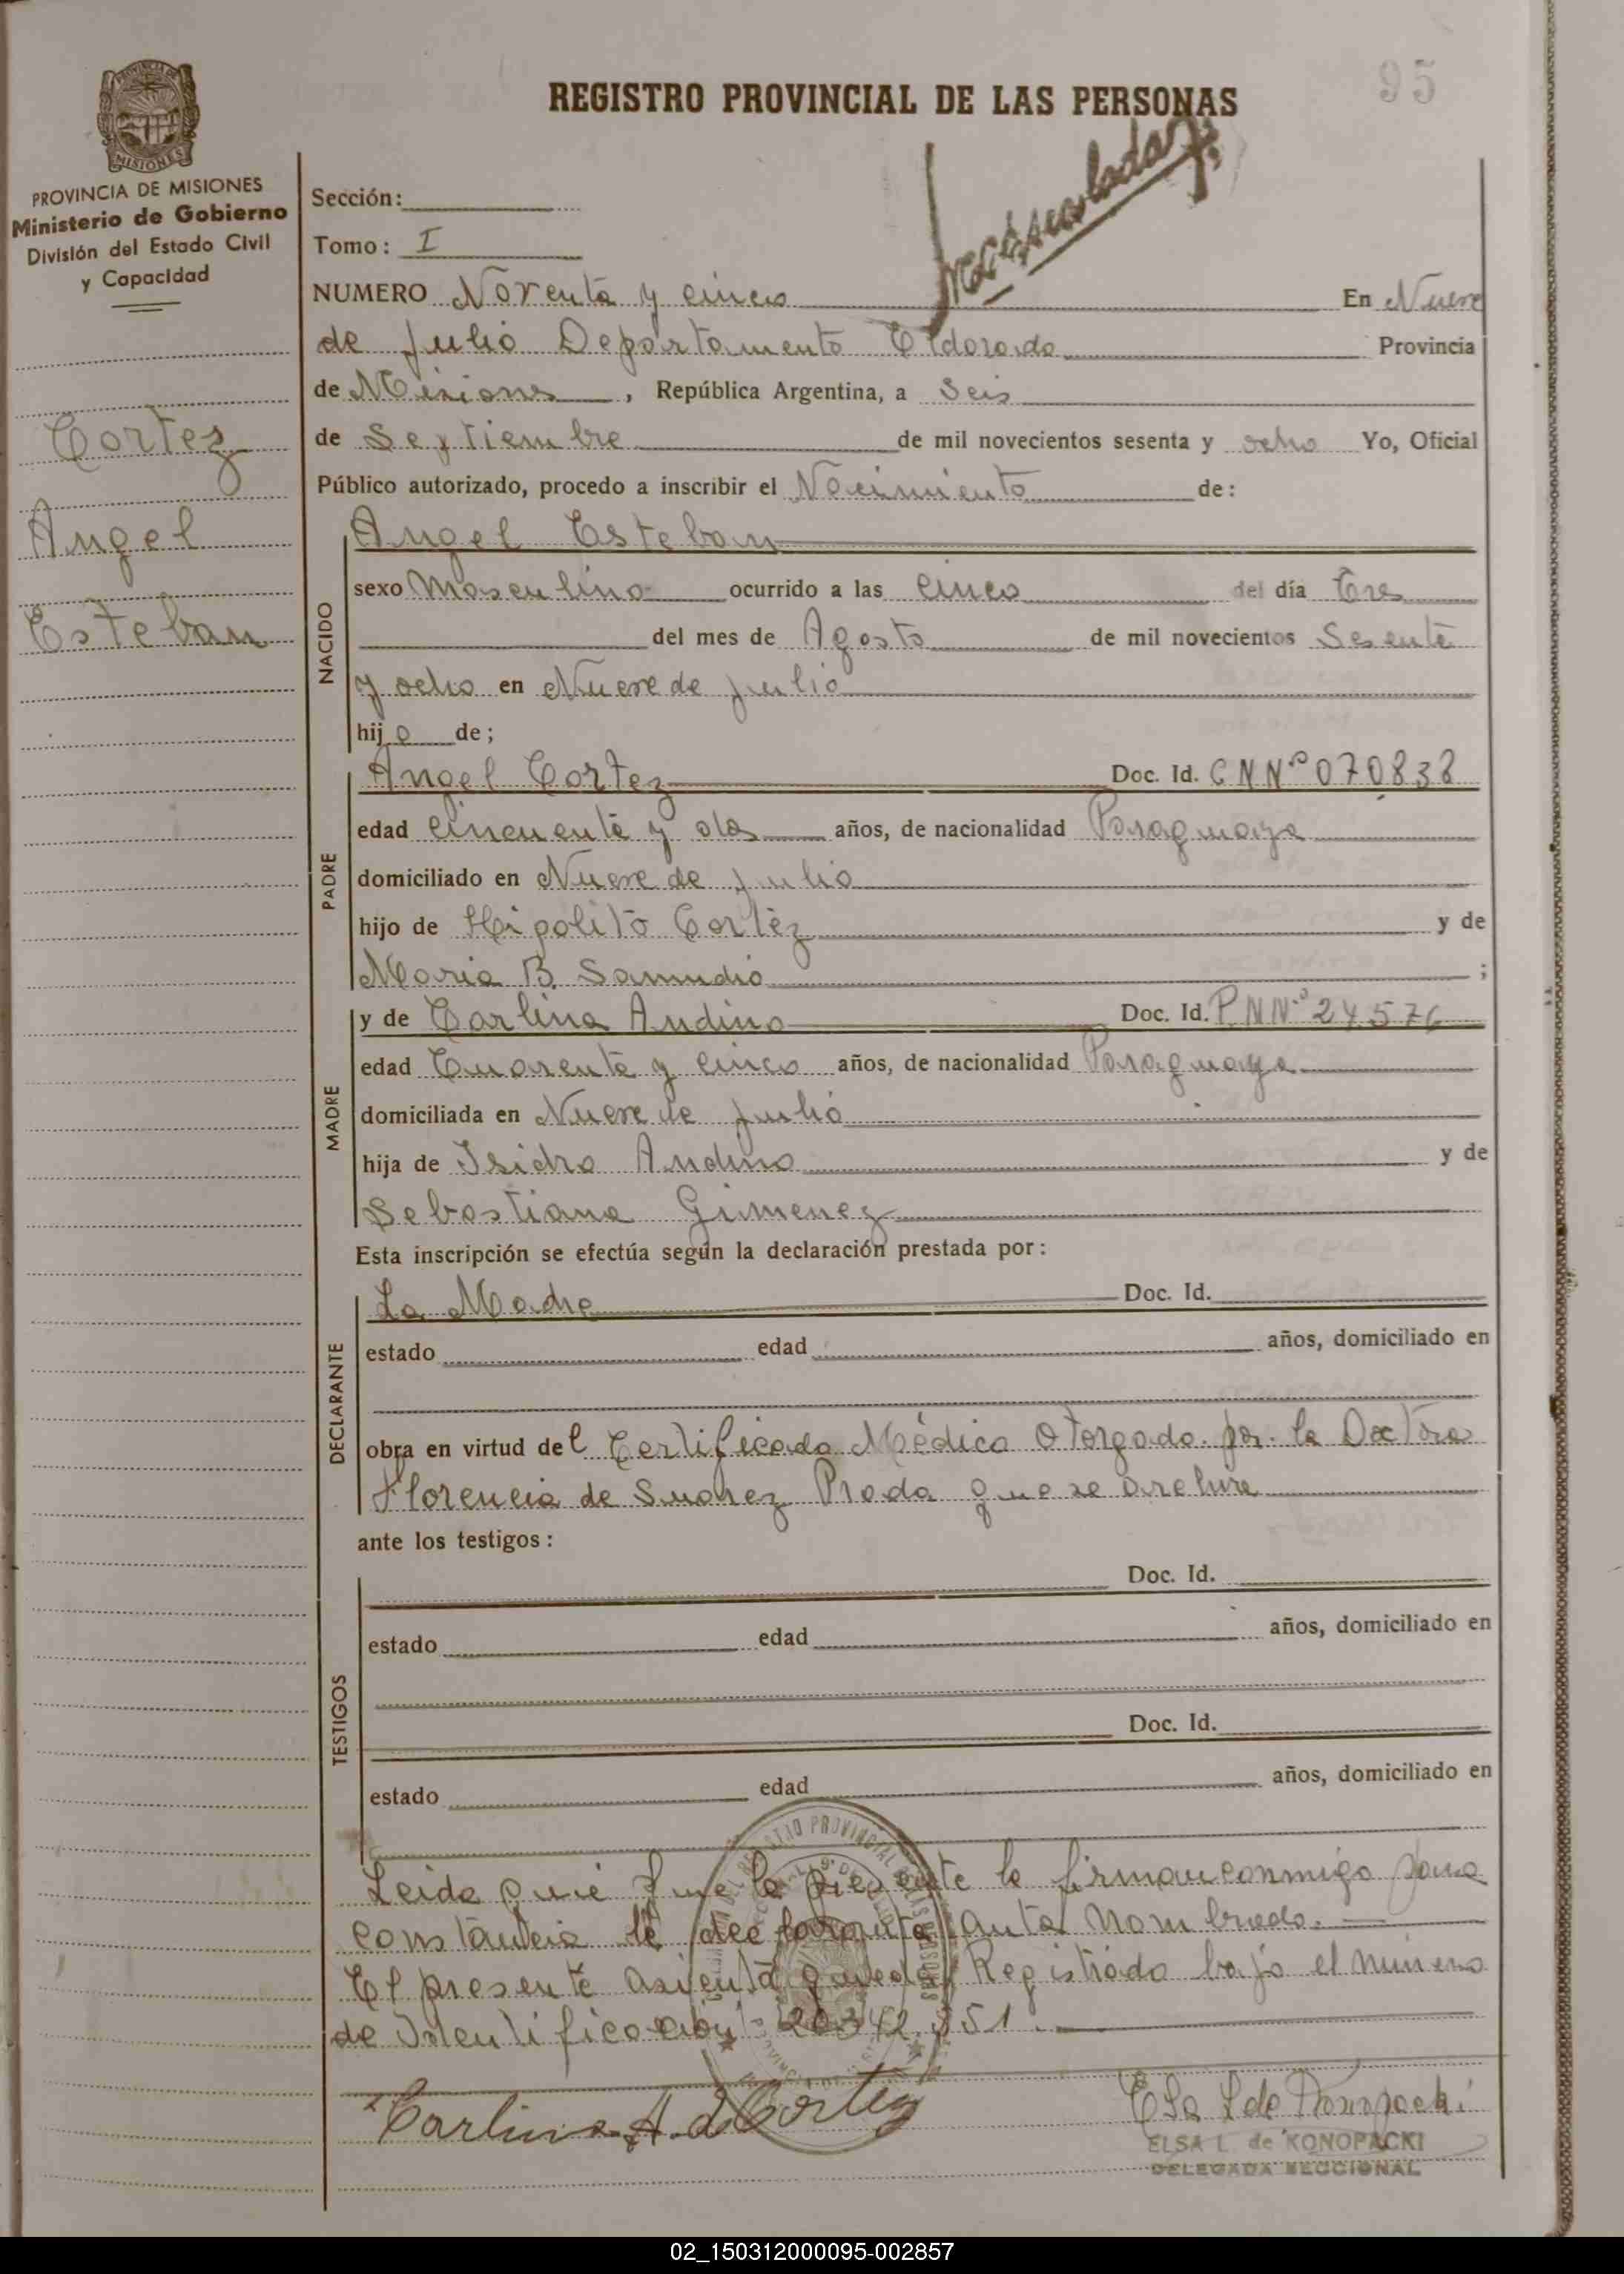 95
REGISTRO PROVINCIAL DE LAS PERSONAS
PROVINCIA DE MISIONES
Ministerio de Gobierno
División del Estado Civil
y Capacidad
Cortez
Angel
Esteban
Sección:
Tomo: I
NUMERO Noventa y cinco En Nueve
de Julio Departamento Eldorado Provincia
de Misiones, República Argentina, a Seis
de Septiembre de mil novecientos sesenta y ocho Yo, Oficial
Público autorizado, procedo a inscribir el Nacimiento de:
NACIDO
Angel Esteban
sexo Masculino ocurrido a las cinco del día Tres
del mes de Agosto de mil novecientos Sesenta
y ocho en Nueve de Julio
hijo de;
PADRE
Angel Cortez Doc. Id. C N Nº 070838
edad cincuenta y dos años, de nacionalidad Paraguaya
domiciliado en Nueve de Julio
hijo de Hipolito Cortéz y de
Maria B. Samudio ;
MADRE
y de Carlina Andino Doc. Id. P. N Nº 24576
edad Cuarenta y cinco años, de nacionalidad Paraguaya
domiciliada en Nueve de Julio
hija de Isidro Andino y de
Sebastiana Gimenez
Esta inscripción se efectúa según la declaración prestada por:
DECLARANTE
La Madre Doc. Id.
estado edad años, domiciliado en
obra en virtud del Certificado Médico Otorgado por la Doctora
Florencia de Suarez Prada que se archiva
ante los testigos:
TESTIGOS
Doc. Id.
estado edad años, domiciliado en
Doc. Id.
estado edad años, domiciliado en
Leida que fue la presente la firman conmigo para
constancia la declarante anta nombrada.
El presente asiento queda Registrado bajo el número
de Identificación 20342.551.
Carlina A. de Cortez
Elsa L de Konopacki
ELSA L. de KONOPACKI
DELEGADA SECCIONAL
02_150312000095-002857